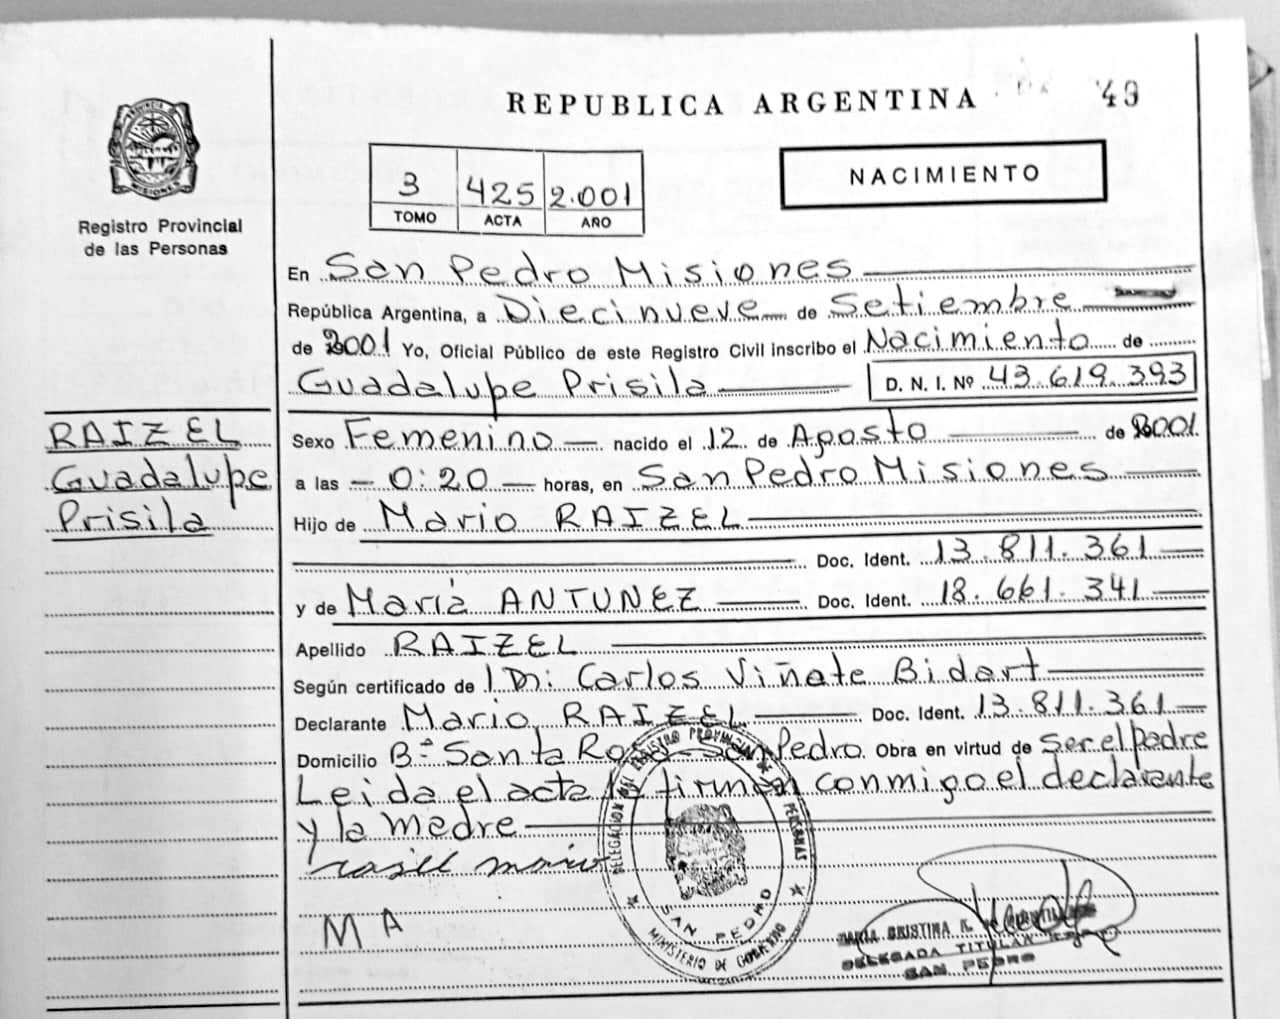 REPUBLICA ARGENTINA
49
PROVINCIA DE MISIONES
Registro Provincial
de las Personas
NACIMIENTO
3 425 2.001
TOMO ACTA AÑO
En San Pedro Misiones
República Argentina, a Diecinueve de Setiembre
de 2001 Yo, Oficial Público de este Registro Civil inscribo el Nacimiento de
Guadalupe Prisila D. N. I. Nº 43.619.393
RAIZEL
Guadalupe
Prisila
Sexo Femenino nacido el 12 de Agosto de 2001
a las 0:20 horas, en San Pedro Misiones
Hijo de Mario RAIZEL
Doc. Ident. 13.811.361
y de María ANTUNEZ Doc. Ident. 18.661.341
Apellido RAIZEL
Según certificado de Carlos Viñate Bidart
Declarante Mario RAIZEL Doc. Ident. 13.811.361
Domicilio Bº Santa Rosa San Pedro Obra en virtud de Ser el padre
Leida el acta la firman conmigo el declarante
y la madre
raizel mario
M A
DELEGACION DEL REGISTRO PROVINCIAL DE LAS PERSONAS
SAN PEDRO
MINISTERIO DE GOBIERNO
MARIA CRISTINA
DELEGADA TITULAR
SAN PEDRO